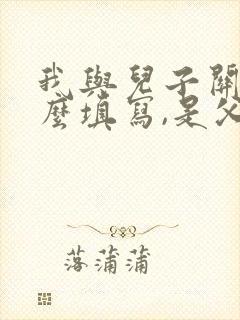 我與兒子關
麼填寫,是父
落蒲蒲